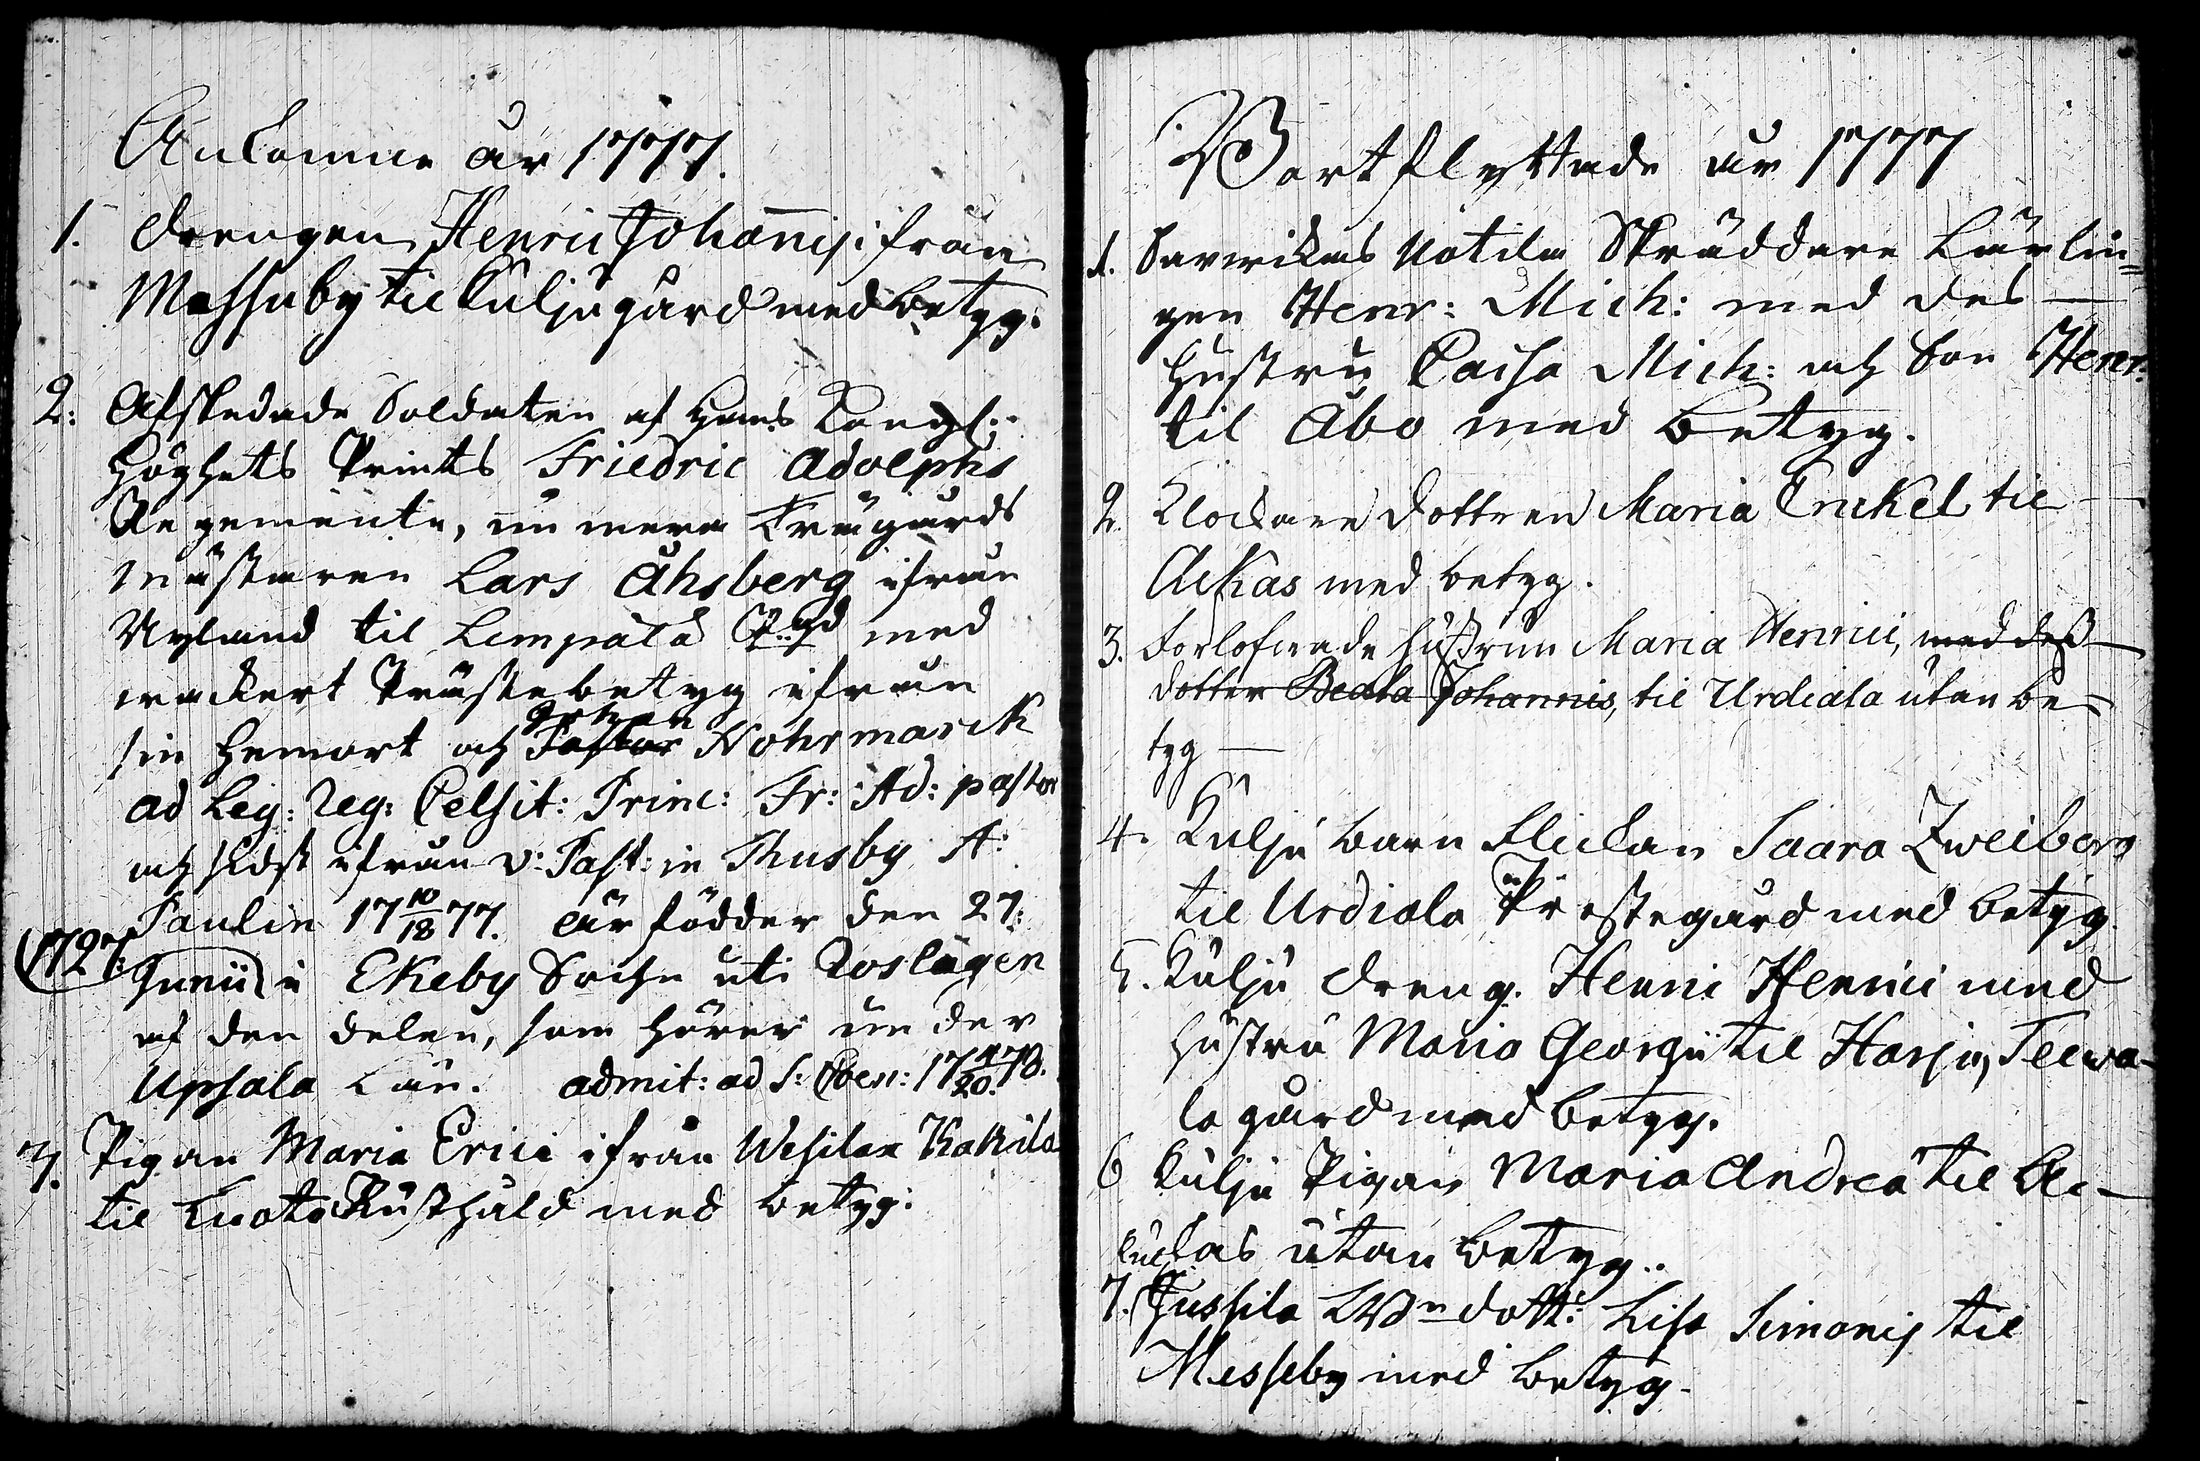 Ankomne år 1777.
1. Drengen Henric Johannis: ifrån
Messuby til Kulju gård med betyg.
2: Afskedade Soldaten af Hans Kongl:
Höghets Prints Friedric Adolphs
Regemente, nu mera Trägårds
mästaren Lars Åhsberg ifrån
Nyland til Lempälä med
wackert Prästebetyg ifrån
sin hemort och Pastor Nohrmarck
ad Leg: Reg: Celsit: Princ: Fr: Ad: pastor
och sidst ifrån v: Past: in Thusby A:
Paulin 17 10/18 77. är födder den 27:
1727: Junii i Ekeby Sochn uti Roslagen
af den delen, som hörer under
Upsala Län. admit: ad S: Coen: 17 4/20. 78.
3. Pigan Maria Erici ifrån Wesilax Kakila
til Kuoto Rusthåld med betyg:
Bortflyttade år 1777
1. Saverikas Uotila Skräddare Lärlin=
gen Henr: Mich: med des —
hustru Caisa Mich: och Son Henr:
til Åbo med betyg.
2. Klockare dottren Maria Enckel til —
Ackas med betyg.
3. Forlofwade hustrun Maria Henrici, med deß —
dotter Beata Johannis, til Urdiala utan be=
tyg —
4. Kulju barn flickan Saara Zweiberg
til Urdiala Prästegård med betyg.
5. Kulju dreng. Henric Henrici med
hustru Maria Georgii til Harju, Teewa-
la gård med betyg.
6 Kulju Pigan Maria Andreæ til Ac—
kas utan betyg..
7. Jussila dott: Lisa Simonis til
Messeby med betyg.